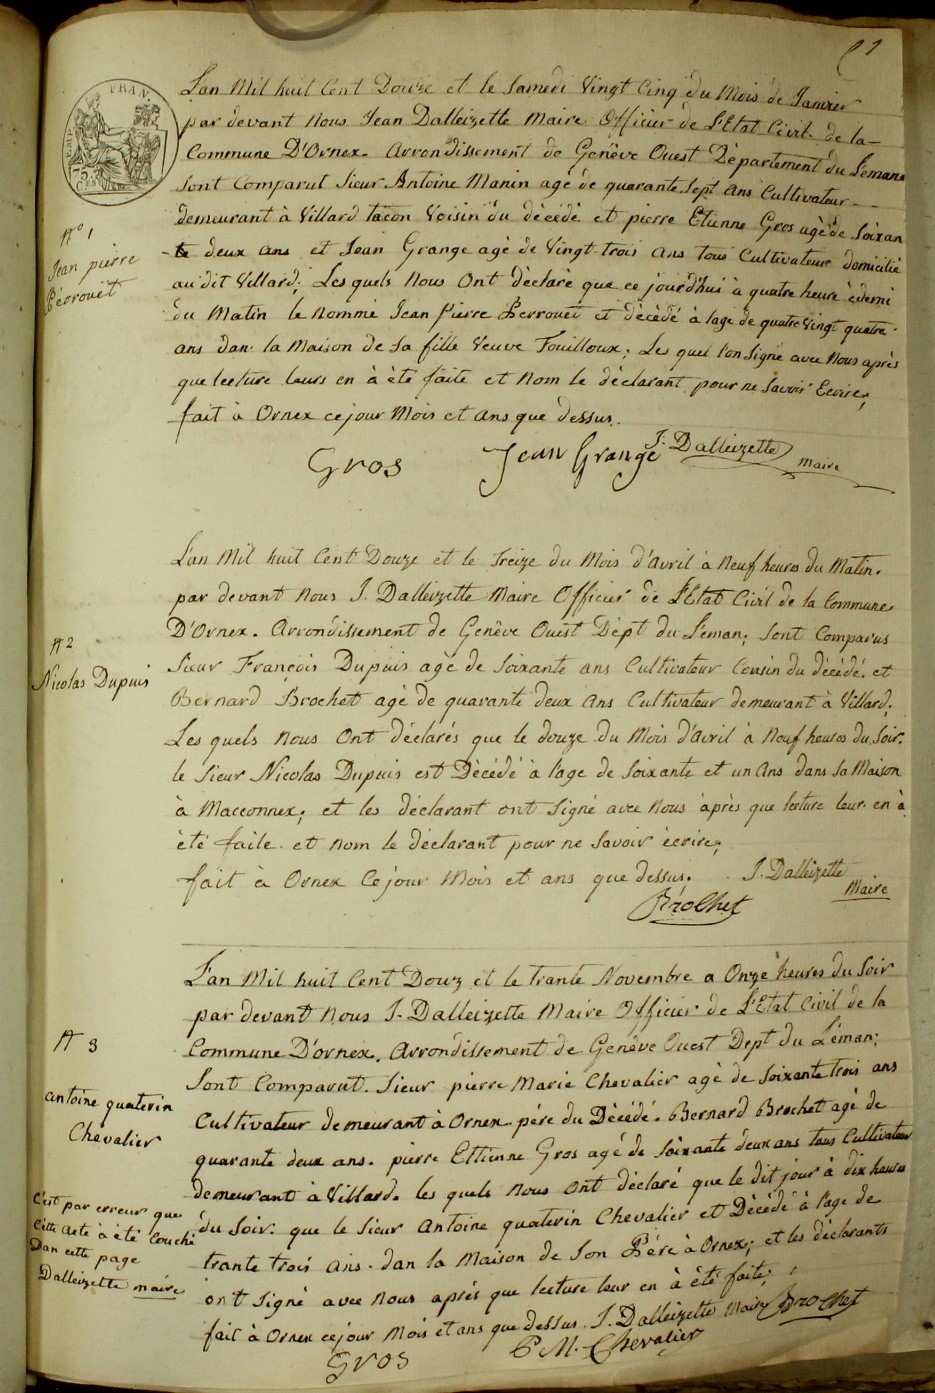 L'an Mil huit Cent Douze et le Samedi Vingt Cinq du Mois de Janvier
par devant Nous Jean Dalleizette Maire Officier de L'Etat Civil de la
Commune D'Ornex. Arrondissement de Genêve Ouest Département du Leman
Sont Comparut Sieur Antoine Manin agé de quarante Sept ans Cultivateur
demeurant à Villard tacon Voisin du décédé et pierre Etienne Gros agé de Soixan
te deux ans et Jean Grange agè de Vingt-trois ans tous Cultivateur domicilié
au dit Villard; Les quels Nous Ont déclaré que ce jourd'hui à quatre heure
du Matin le Nommé Jean Pierre Perrouet et décèdé à l'age de quatre Vingt quatre
ans dan la Maison de Sa fille Veuve Fouilloux; Les quel l'on Signé avec Nous après
que lecture leurs en à été faite et Nom le déclarant pour ne Savoir Ecrire;
fait à Ornex ce jour Mois et ans que dessus.
Gros Jean Grange J. Dalleizette Maire
N° 1
Jean pierre
Pérrouët
L'an Mil huit Cent Douze et le Treize du Mois d'Avril à Neuf heures du Matin.
par devant Nous J. Dalleizette Maire Officier de L'Etat Civil de la Commune
D'Ornex. Arrondissement de Genêve Ouest Dépt du Leman; Sont Comparus
Sieur François Dupuis agé de Soixante ans Cultivateur Cousin du décédé. et
Bernard Brochet agé de quarante deux ans Cultivateur demeurant à Villard;
Les quels Nous Ont déclarés que le douze du Mois d'Avril à Neuf heures du Soir.
le Sieur Nicolas Dupuis est Décédé à l'age de Soixante et un Ans dans Sa Maison
à Macconnex; et les déclarant ont Signé avec Nous après que lecture leur en à
été faite. et Nom le déclarant pour ne Savoir écrire;
fait à Ornex Ce jour Mois et ans que dessus. J. Dalleizette
Maire
Brochet
N° 2
Nicolas Dupuis
L'an Mil huit Cent Douz et le trante Novembre a Onze heures du Soir
par devant Nous J. Dalleizette Maire Officier de L'Etat Civil de la
Commune D'ornex. Arrondissement de Genêve Ouest Dept du Léman;
Sont Comparut. Sieur pierre Marie Chevalier agé de Soixante trois ans
Cultivateur demeurant à Ornex pére du Décédé. Bernard Brochet agé de
quarante deux ans. pierre Ettienne Gros agé de Soixante deux ans tous Cultivateur
demeurant à Villard. les quels Nous Ont déclaré que le dit jour à dix heures
du Soir. que le Sieur Antoine quaterin Chevalier et Décédé à l'age de
trante trois ans. dan la Maison de Son Pére à Ornex; et les déclarants
ont Signé avec Nous après que lecture leur en à été faite;
fait à Ornex ce jour Mois et ans que dessus. J. Dalleizette Maire Brochet
Gros P M. Chevalier
N 3
antoine quaterin
Chevalier
C'est par erreur que
Cette acte à été Couché
Dan cette page
Dalleizette maire